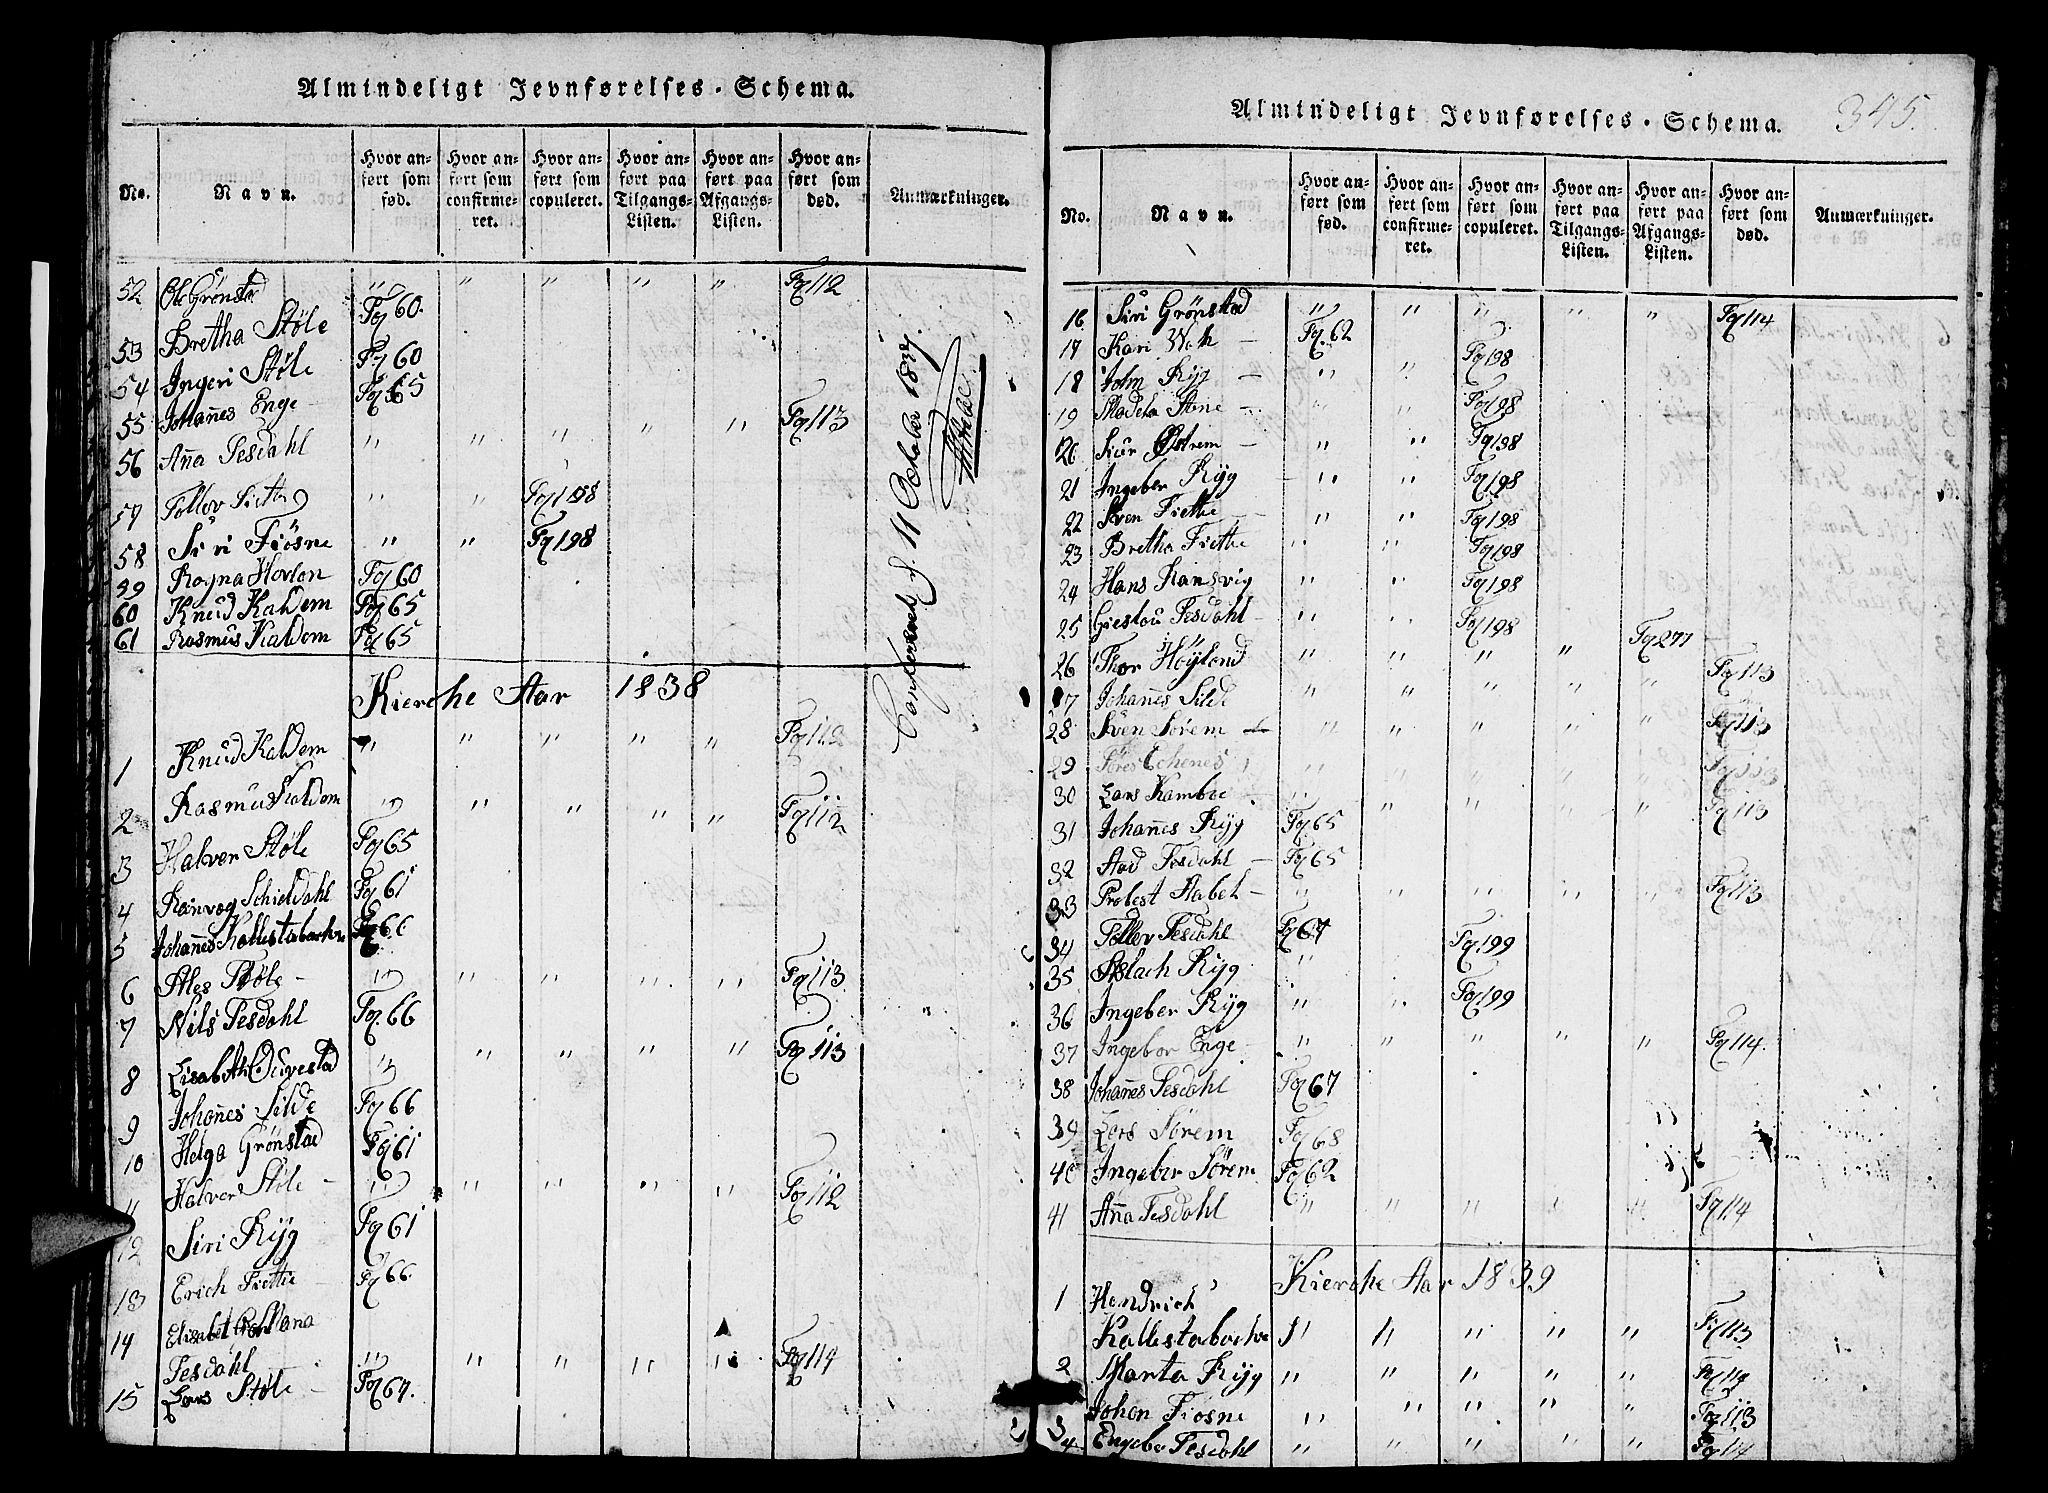 Almindeligt Jevnførelses-Schema.
No. Navn. Hvor anført som fød. Hvor anført som confirmeret. Hvor anført som copuleret. Hvor anført paa Tilgangs-Listen. Hvor anført paa Afgangs-Listen. Hvor anført som død. Anmærkninger.
52 Ole Grönstad " " " " " Fq 112
53 Bretha Støle Fq 60.
54 Ingeri Støle Fq 60
55 Johañes Enge Fq 65
56 Aña Tesdahl " " " " " Fq 113
57 Tollov " " Fq 198
58 Siri Fiösne " " Fq 198
59 Ragna Hovlon Fq 60
60 Knud Kaldem Fq 65
61 Rasmus Kaldem Fq 65
Kierche Aar 1838
1 Knud Kaldem " " " " " Fq 112
2 Rasmus Kaldem " " " " " Fq 112
3 Halver Støle Fq 65
4 Ranvog Schieldahl Fq 61
5 Johañes Kallestabacke Fq 66
6 Ales Støle " " " " " Fq 113
7 Nils Tesdahl Fq. 66
8 Lisabeth Durestad " " " " " Fq 113
9 Johañes Silde Fq 66
10 Helga Grönstad Fq 61
11 Halver Støle " " " " " Fq 112
12 Siri Ryg Fq 61
13 Erich Fiettie Fq 66.
14 Elisabet
Tesdahl " " " " " Fq 114
15 Lars Støle Fq 67.
11 October 1837
Almindeligt Jevnførelses-Schema. 345.
No. Navn. Hvor anført som fød. Hvor anført som confirmeret. Hvor anført som copuleret. Hvor anført paa Tilgangs-Listen. Hvor anført paa Afgangs-Listen. Hvor anført som død. Anmærkninger.
16 Siri Grönstad " " " " " Fq 114
17 Kari Fq. 62
18 John Ryg " " Fq 198
19 Stene " " Fq 198
20 Siur Østrem " " Fq 198
21 Ingeber Ryg " " Fq 198
22 Sven Fiettie " " Fq 198
23 Bretha Fiettie " " Fq 198
24 Hans Ransvig " " Fq 198
25 Giestou Tesdahl " " Fq 198
26 Thor Höyland " " " " Fq 277
27 Johañes Silde " " " " " Fq 113
28 Sven Sörem " " " " " Fq 113
29 " " " " " Fq 113
30 Lars Kamboe " " " " " Fq 113
31 Johañes Ryg Fq 65
32 Aad Tesdahl Fq 65
33 Probest Aabel " " " " " Fq 113
34 Toller Tesdahl Fq 67
35 Aslach Ryg " " Fq 199
36 Ingeber Ryg " " Fq 199
37 Ingebor Enge " " " " " Fq 114.
38 Johañes Tesdahl Fq 67
39 Lars Sörem Fq 68
40 Ingeber Sörem Fq 62
41 Aña Tesdahl " " " " " Fq 114
Kierche Aar 1839
1 Hendrich
Kallestabacke " " " " " Fq 113
2 Marta Ryg " " " " " Fq 114
3 Johan Fiosne " " " " " Fq 113
4 Engebor Tesdahl " " " " " Fq 114